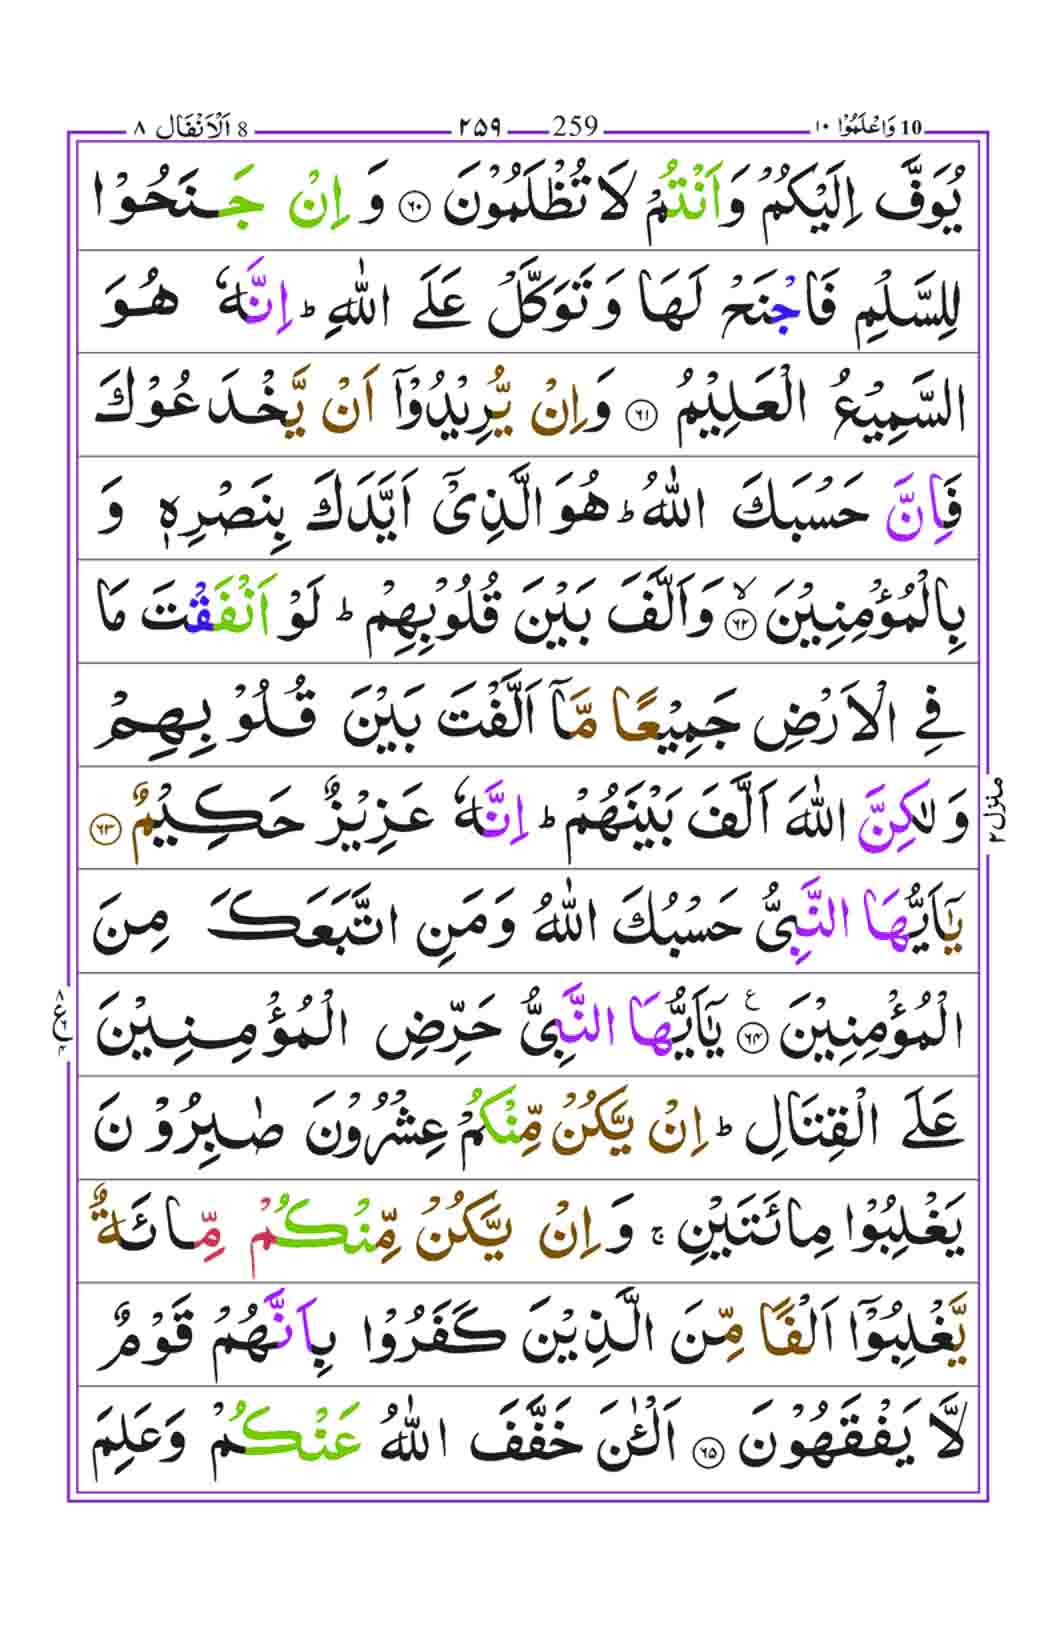 10 وَاعْلَمُوْٓا ١٠ 259 ٢٥٩ 8 اَلْاَنْفَال ٨
يُوَفَّ اِلَيْكُمْ وَاَنْتُمْ لَا تُظْلَمُوْنَ ۝٦٠ وَ اِنْ جَـنَحُوْا
لِلسَّلْمِ فَاجْنَحْ لَهَا وَ تَوَكَّلْ عَلَى اللّٰهِ ؕ اِنَّهٗ هُوَ
السَّمِيْعُ الْعَلِيْمُ ۝٦١ وَاِنْ يُّرِيْدُوْۤا اَنْ يَّخْدَعُوْكَ
فَاِنَّ حَسْبَكَ اللّٰهُ ؕ هُوَ الَّذِيْۤ اَيَّدَكَ بِنَصْرِهٖ وَ
بِالْمُؤْمِنِيْنَ ۝٦٢ ۙ وَاَلَّفَ بَيْنَ قُلُوْبِهِمْ ؕ لَوْ اَنْفَقْتَ مَا
فِي الْاَرْضِ جَمِيْعًا مَّاۤ اَلَّفْتَ بَيْنَ قُلُوْبِهِمْ
وَ لٰكِنَّ اللّٰهَ اَلَّفَ بَيْنَهُمْ ؕ اِنَّهٗ عَزِيْزٌ حَكِيْمٌ ۝٦٣
يٰۤاَيُّهَا النَّبِيُّ حَسْبُكَ اللّٰهُ وَمَنِ اتَّبَعَكَ مِنَ
الْمُؤْمِنِيْنَ ۝٦٤ ع يٰۤاَيُّهَا النَّبِيُّ حَرِّضِ الْمُؤْمِنِيْنَ
عَلَى الْقِتَالِ ؕ اِنْ يَّكُنْ مِّنْكُمْ عِشْرُوْنَ صٰبِرُوْنَ
يَغْلِبُوْا مِائَتَيْنِ ۚ وَ اِنْ يَّكُنْ مِّنْكُمْ مِّائَةٌ
يَّغْلِبُوْۤا اَلْفًا مِّنَ الَّذِيْنَ كَفَرُوْا بِاَنَّهُمْ قَوْمٌ
لَّا يَفْقَهُوْنَ ۝٦٥ اَلْـٰٔنَ خَفَّفَ اللّٰهُ عَنْكُمْ وَعَلِمَ
منزل ٢